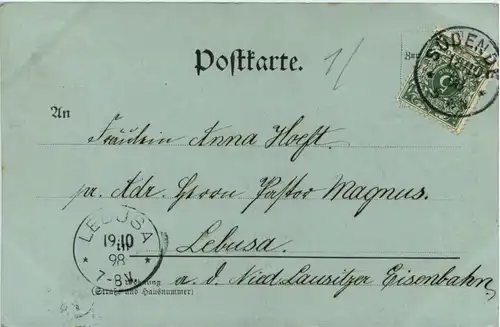 Postkarte.
SÜDENDE
5
An
Fräulein Anna Hoeft
pr. Adr. Herrn Pastor Magnus.
Lebusa.
a. d. Nied. Lausitzer Eisenbahn.
LEBUSA
19.10
98
7-8V.
(Straße und Hausnummer)